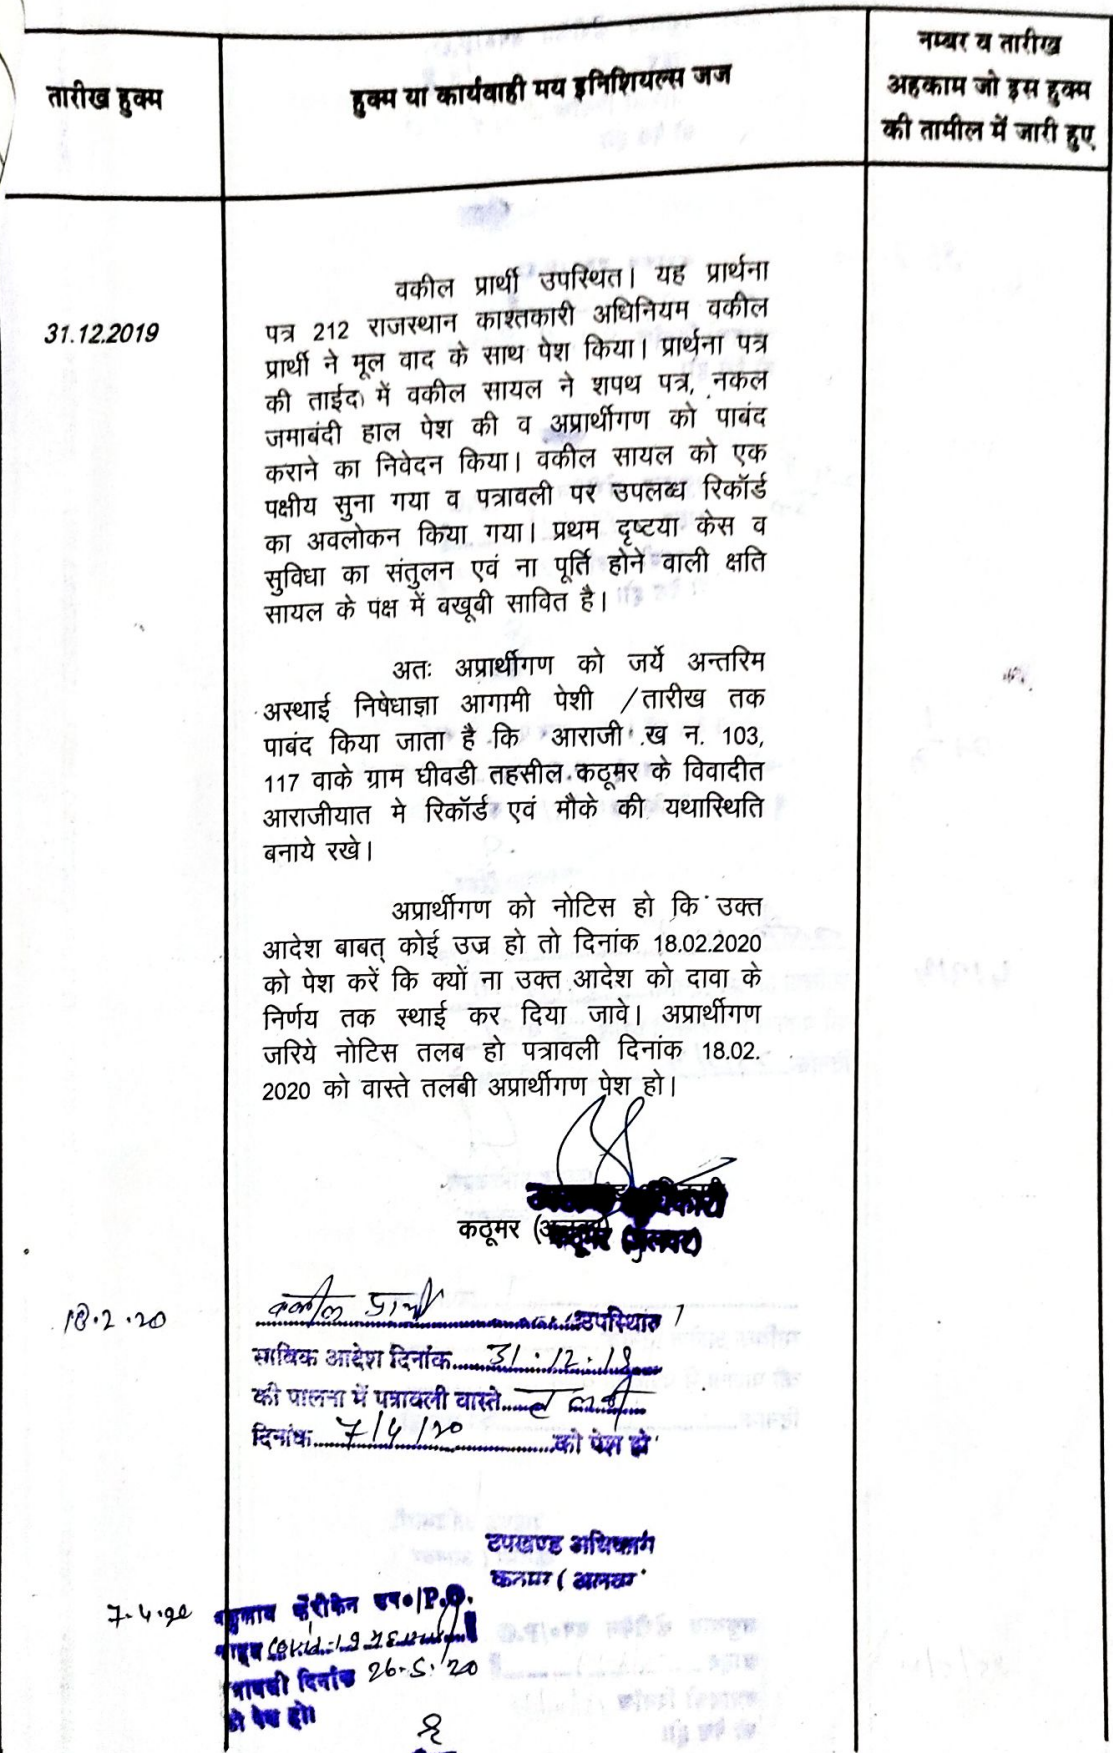 तारीख हुक्म
हुक्म या कार्यवाही मय इनिशियल्स जज
नम्बर व तारीख
अहकाम जो इस हुक्म
की तामील में जारी हुए
31.12.2019
वकील प्रार्थी उपस्थित। यह प्रार्थना
पत्र 212 राजस्थान काश्तकारी अधिनियम वकील
प्रार्थी ने मूल वाद के साथ पेश किया। प्रार्थना पत्र
की ताईद में वकील सायल ने शपथ पत्र, नकल
जमाबंदी हाल पेश की व अप्रार्थीगण को पाबंद
कराने का निवेदन किया। वकील सायल को एक
पक्षीय सुना गया व पत्रावली पर उपलब्ध रिकॉर्ड
का अवलोकन किया गया। प्रथम दृष्टया केस व
सुविधा का संतुलन एवं ना पूर्ति होने वाली क्षति
सायल के पक्ष में बखूबी सावित है।
अतः अप्रार्थीगण को जर्ये अन्तरिम
अस्थाई निषेधाज्ञा आगामी पेशी /तारीख तक
पाबंद किया जाता है कि आराजी ख न. 103,
117 वाके ग्राम घीवडी तहसील कठूमर के विवादीत
आराजीयात मे रिकॉर्ड एवं मौके की यथास्थिति
बनाये रखे।
अप्रार्थीगण को नोटिस हो कि उक्त
आदेश बाबत् कोई उज्र हो तो दिनांक 18.02.2020
को पेश करें कि क्यों ना उक्त आदेश को दावा के
निर्णय तक स्थाई कर दिया जावे। अप्रार्थीगण
जरिये नोटिस तलब हो पत्रावली दिनांक 18.02.
2020 को वास्ते तलबी अप्रार्थीगण पेश हो।
कठूमर (अलवर)
18.2.20
वकील प्रार्थी उपस्थित
साबिक आदेश दिनांक 31.12.19
की पालना में पत्रावली वास्ते तलबी
दिनांक 7/4/20 को पेश हो
उपखण्ड अधिकारी
कठूमर (अलवर
7.4.20
P.O.
दिनांक 26.5.20
को पेश हो।